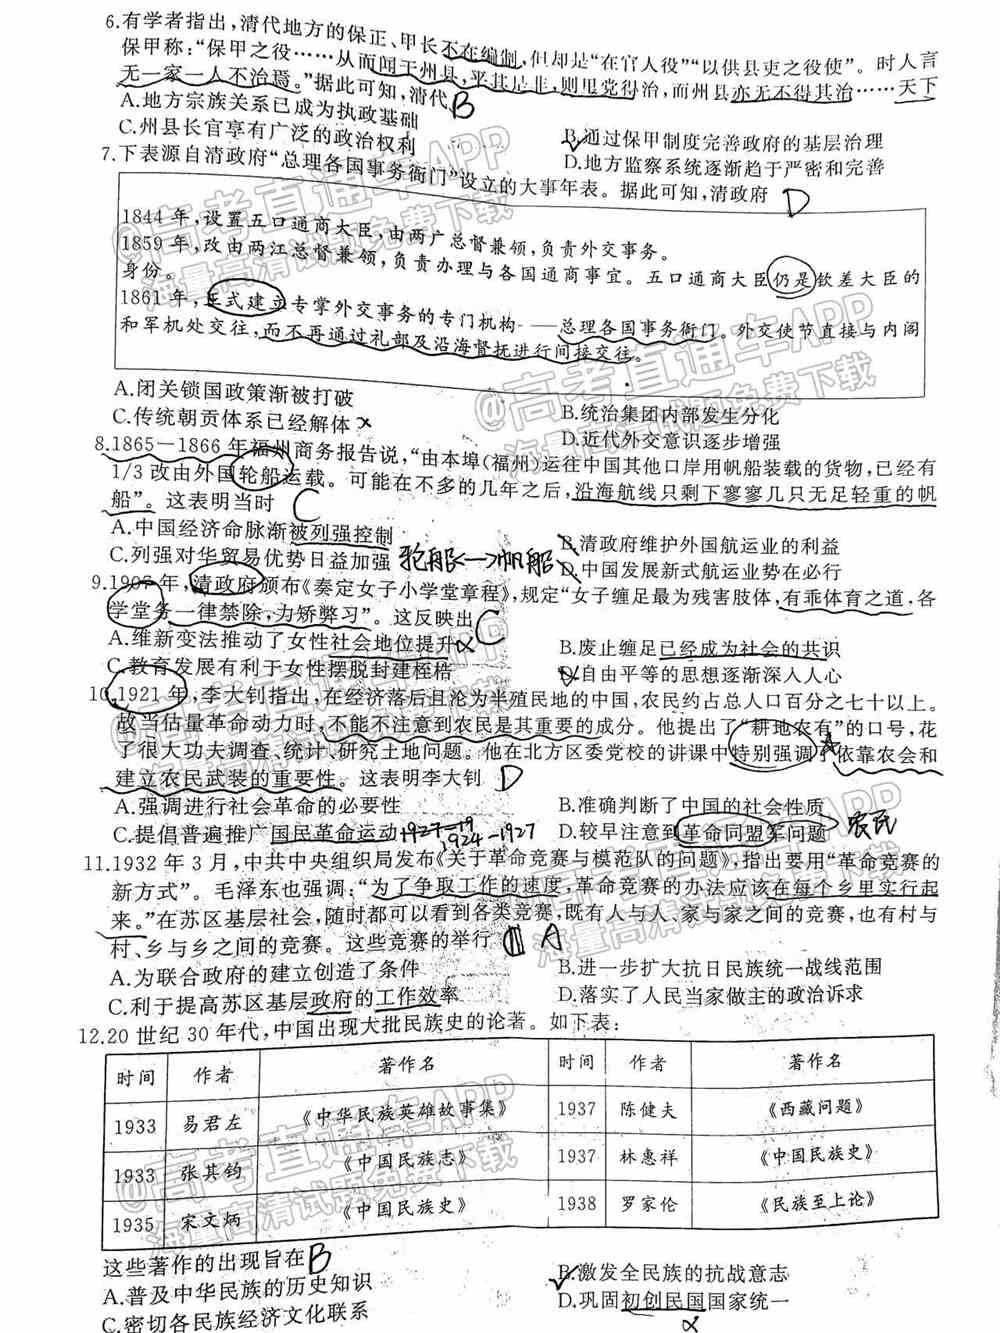 6.有学者指出，清代地方的保正、甲长不在编制，但却是“在官人役”“以供县吏之役使”。时人言
保甲称：“保甲之役……从而闻于州县，平其是非，则里党得治，而州县亦无不得其治……天下
无一家一人不治焉。”据此可知，清代 B
A.地方宗族关系已成为执政基础
B.通过保甲制度完善政府的基层治理
C.州县长官享有广泛的政治权利
D.地方监察系统逐渐趋于严密和完善
7.下表源自清政府“总理各国事务衙门”设立的大事年表。据此可知，清政府 D
1844 年，设置五口通商大臣，由两广总督兼领，负责外交事务。
1859 年，改由两江总督兼领，负责办理与各国通商事宜。五口通商大臣仍是钦差大臣的
身份。
1861 年，正式建立专掌外交事务的专门机构——总理各国事务衙门。外交使节直接与内阁
和军机处交往，而不再通过礼部及沿海督抚进行间接交往。
A.闭关锁国政策渐被打破
B.统治集团内部发生分化
C.传统朝贡体系已经解体 x
D.近代外交意识逐步增强
8.1865－1866 年福州商务报告说，“由本埠（福州）运往中国其他口岸用帆船装载的货物，已经有
1/3 改由外国轮船运载。可能在不多的几年之后，沿海航线只剩下寥寥几只无足轻重的帆
船”。这表明当时 C
A.中国经济命脉渐被列强控制
B.清政府维护外国航运业的利益
C.列强对华贸易优势日益加强 轮船←→帆船
D.中国发展新式航运业势在必行
9.1907 年，清政府颁布《奏定女子小学堂章程》，规定“女子缠足最为残害肢体，有乖体育之道，各
学堂务一律禁除，力矫弊习”。这反映出 C
A.维新变法推动了女性社会地位提升 x
B.废止缠足已经成为社会的共识
C.教育发展有利于女性摆脱封建桎梏
D.自由平等的思想逐渐深入人心
10.1921 年，李大钊指出，在经济落后且沦为半殖民地的中国，农民约占总人口百分之七十以上。
故当估量革命动力时，不能不注意到农民是其重要的成分。他提出了“耕地农有”的口号，花
了很大功夫调查、统计、研究土地问题。他在北方区委党校的讲课中特别强调了依靠农会和
建立农民武装的重要性。这表明李大钊 D
A.强调进行社会革命的必要性
B.准确判断了中国的社会性质
C.提倡普遍推广国民革命运动 1924-1927
D.较早注意到革命同盟军问题 农民
11.1932 年 3 月，中共中央组织局发布《关于革命竞赛与模范队的问题》，指出要用“革命竞赛的
新方式”。毛泽东也强调：“为了争取工作的速度，革命竞赛的办法应该在每个乡里实行起
来。”在苏区基层社会，随时都可以看到各类竞赛，既有人与人、家与家之间的竞赛，也有村与
村、乡与乡之间的竞赛。这些竞赛的举行 A
A.为联合政府的建立创造了条件
B.进一步扩大抗日民族统一战线范围
C.利于提高苏区基层政府的工作效率
D.落实了人民当家做主的政治诉求
12.20 世纪 30 年代，中国出现大批民族史的论著。如下表：
时间 作者 著作名 时间 作者 著作名
1933 易君左 《中华民族英雄故事集》 1937 陈健夫 《西藏问题》
1933 张其钧 《中国民族志》 1937 林惠祥 《中国民族史》
1935 宋文炳 《中国民族史》 1938 罗家伦 《民族至上论》
这些著作的出现旨在 B
A.普及中华民族的历史知识
B.激发全民族的抗战意志
C.密切各民族经济文化联系
D.巩固初创民国国家统一
x
@高考直通车APP
海量高清试题免费下载
@高考直通车APP
海量高清试题免费下载
@高考直通车APP
海量高清试题免费下载
@高考直通车APP
海量高清试题免费下载
@高考直通车APP
海量高清试题免费下载
@高考直通车APP
海量高清试题免费下载